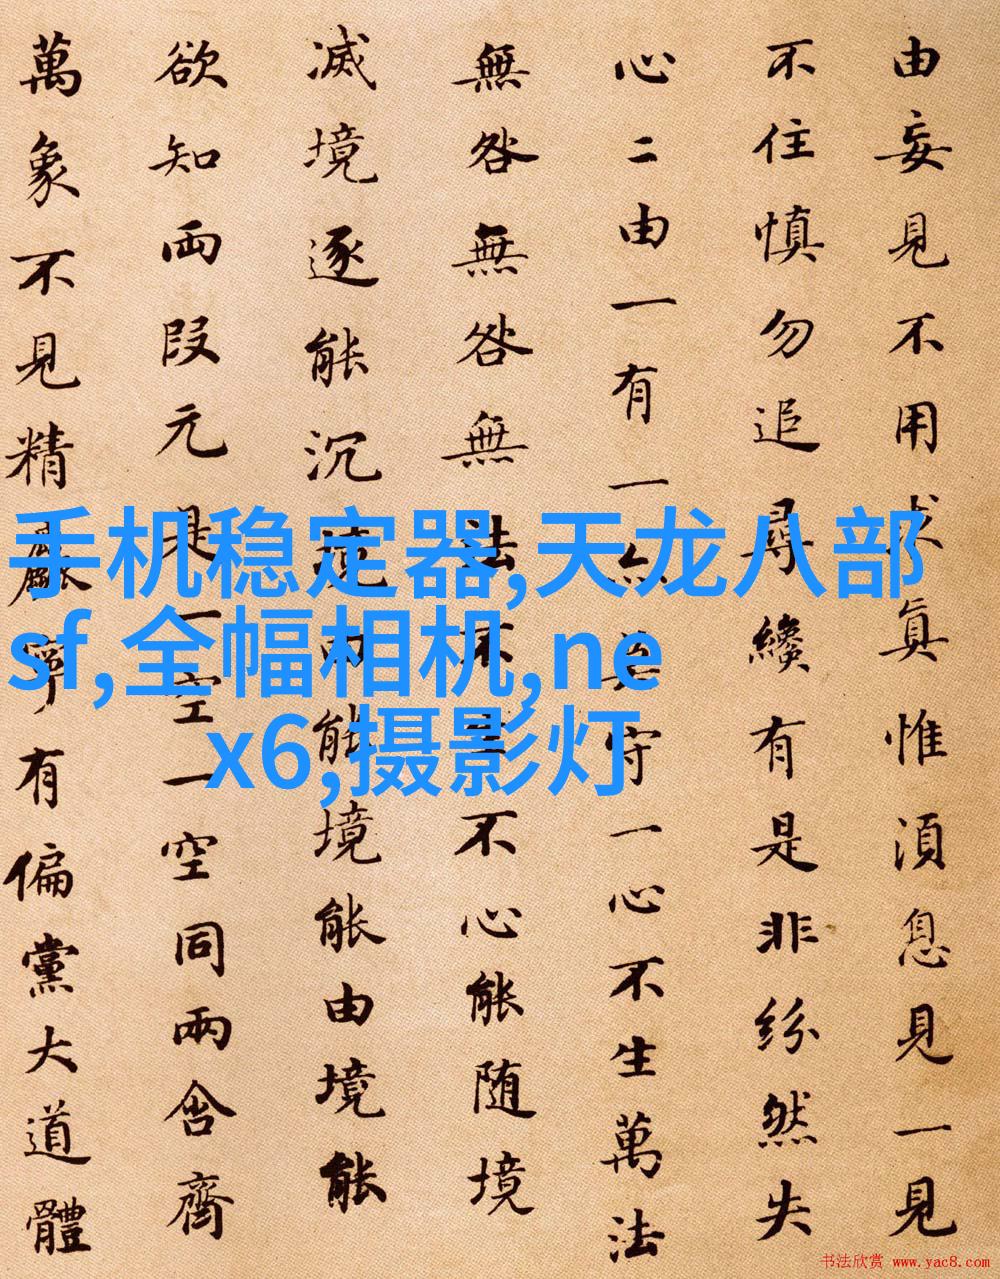 由妄見不用求眞惟湏息見一見
不住慎勿追尋纔有是非紛然失
心二由一有一守一心不生萬法
無咎無咎無法不生不心能随境
滅境逐能沉境能境能由境能
欲知兩段元是一空一空同兩含齊
萬象不見精有偏黨大道體
手机稳定器,天龙八部
sf,全幅相机,ne
x6,摄影灯
书法欣赏 www.yac8.com